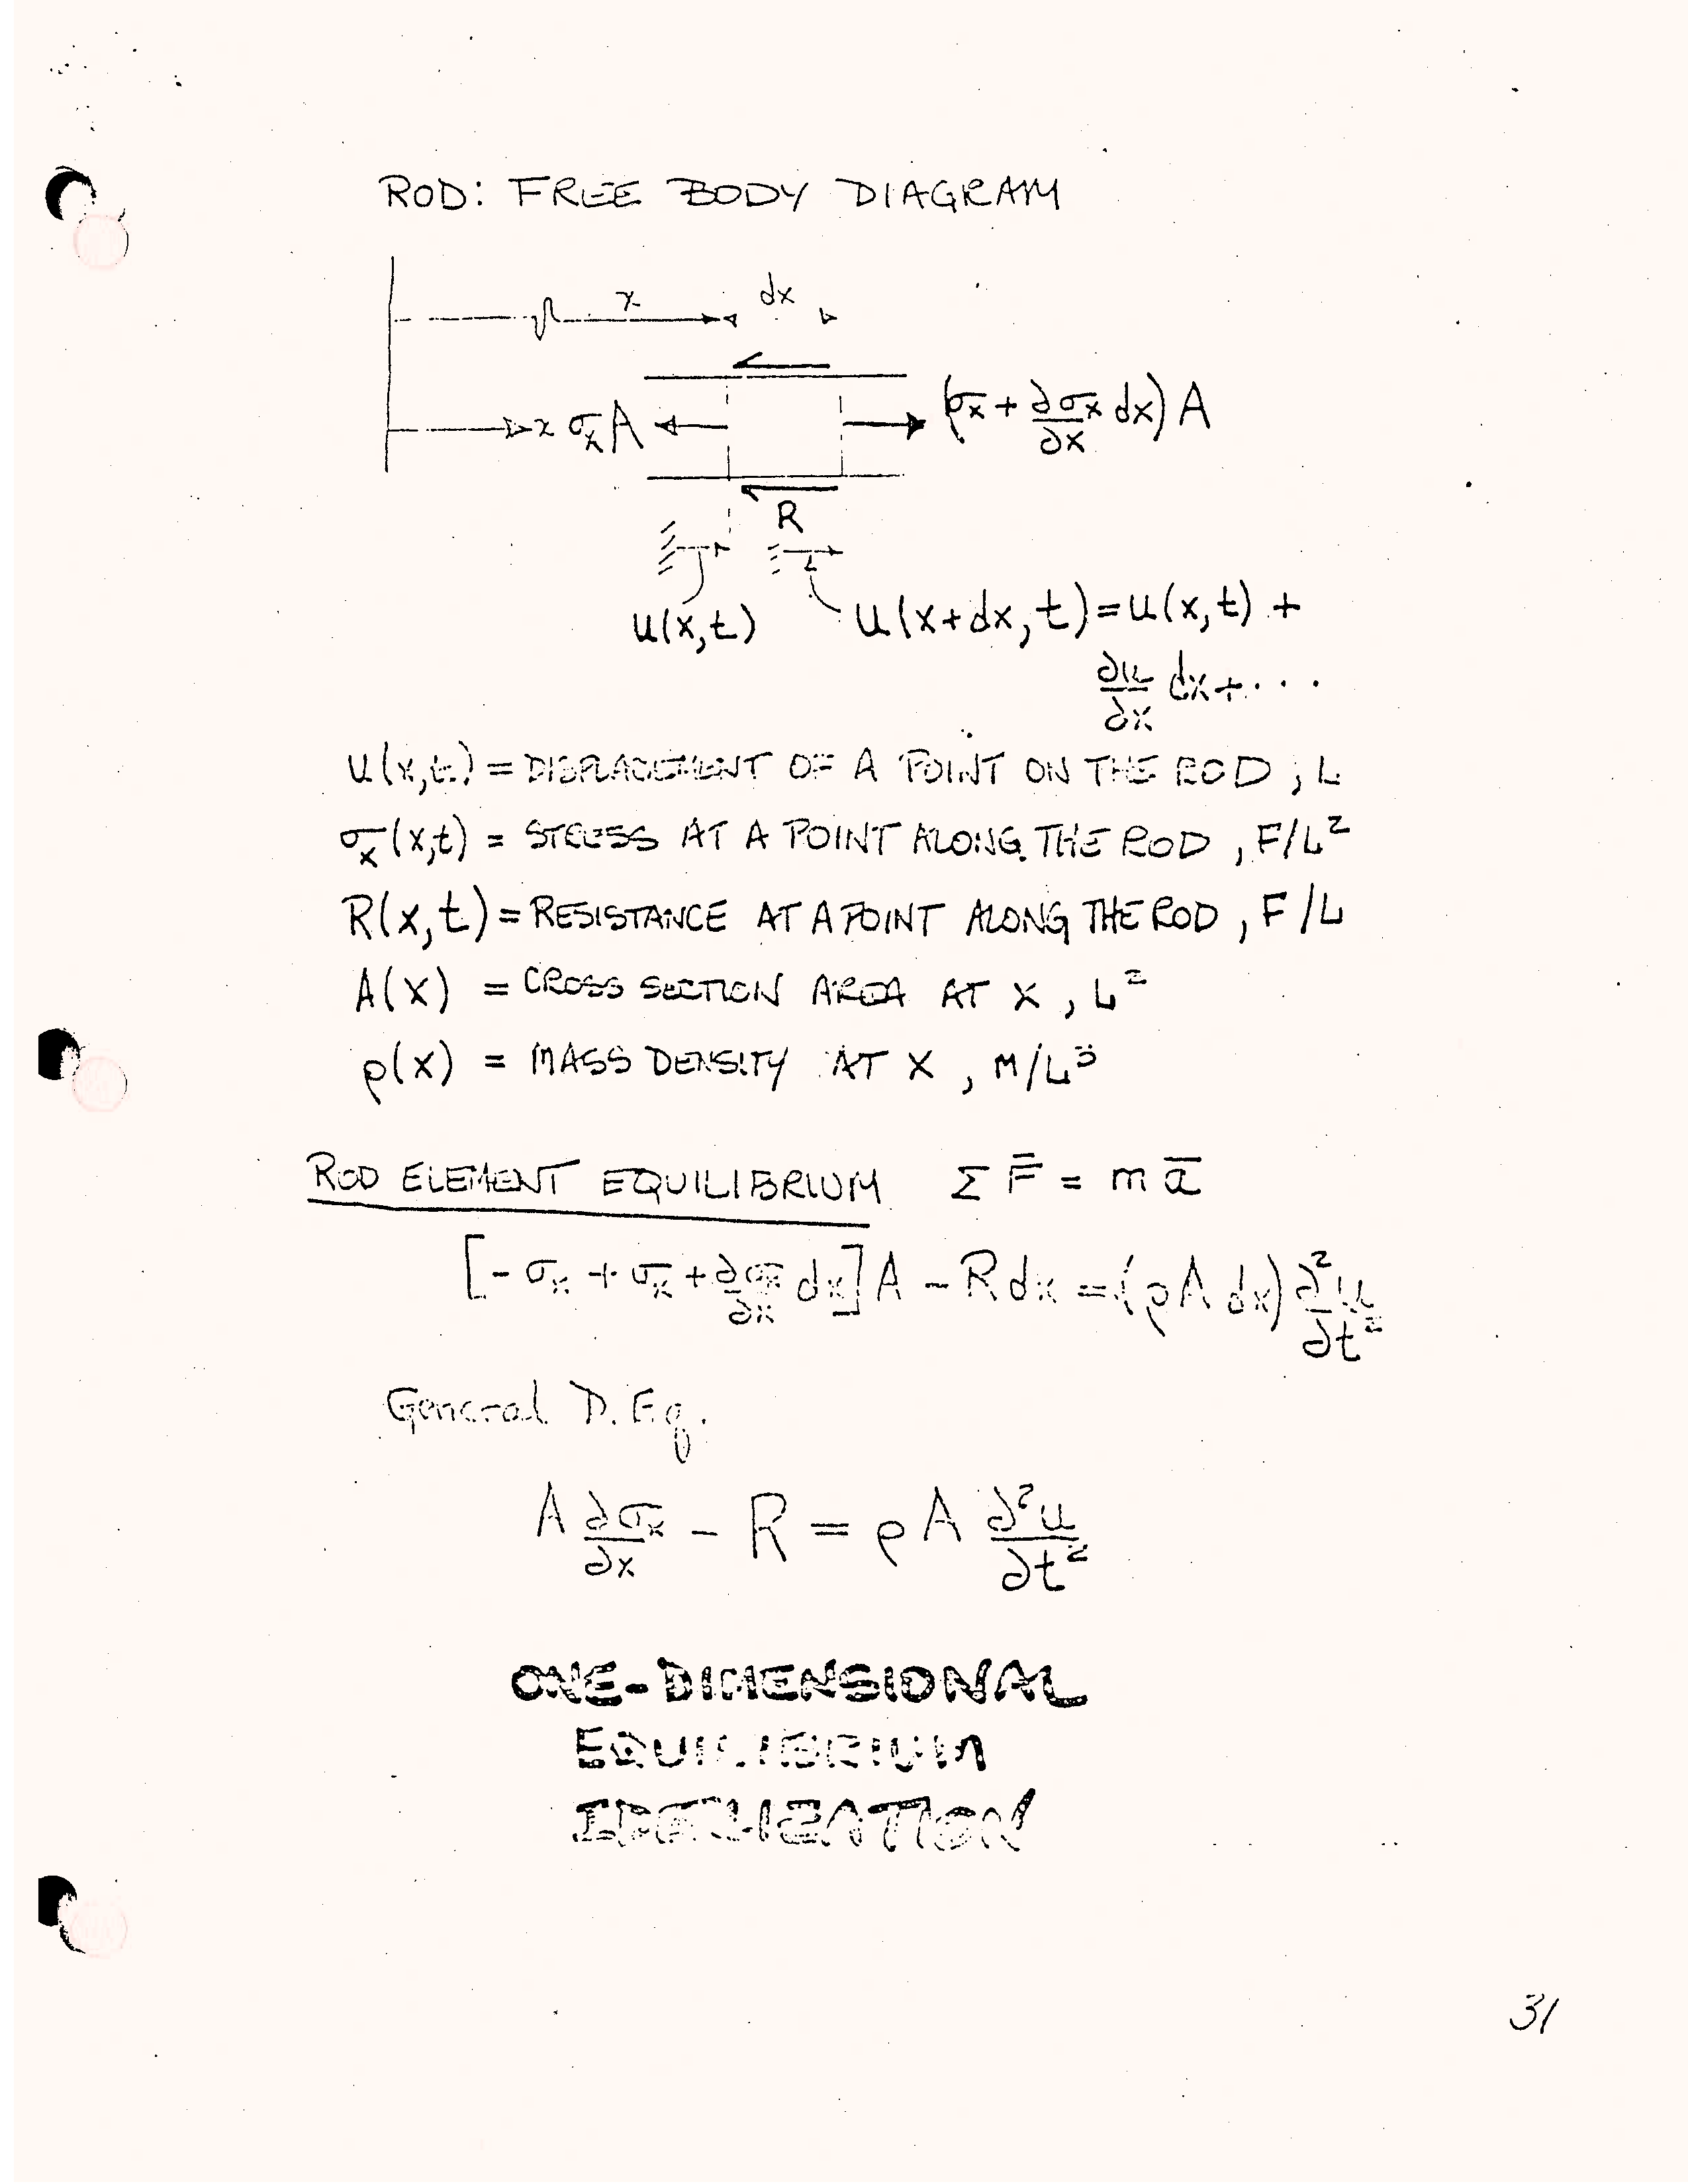 ROD: FREE BODY DIAGRAM
x dx
x σₓA (σₓ + ∂σₓ/∂x dx) A
R
u(x,t) u(x+dx,t) = u(x,t) +
∂u/∂x dx + · · ·
u(x,t) = DISPLACEMENT OF A POINT ON THE ROD, L
σₓ(x,t) = STRESS AT A POINT ALONG THE ROD, F/L²
R(x,t) = RESISTANCE AT A POINT ALONG THE ROD, F/L
A(x) = CROSS SECTION AREA AT X, L²
ρ(x) = MASS DENSITY AT X, M/L³
ROD ELEMENT EQUILIBRIUM Σ F̄ = m ā
[-σₓ + σₓ + ∂σₓ/∂x dx] A - R dx = (ρ A dx) ∂²u/∂t²
General D. Eq.
A ∂σₓ/∂x - R = ρ A ∂²u/∂t²
ONE-DIMENSIONAL
EQUILIBRIUM
IDEALIZATION
31